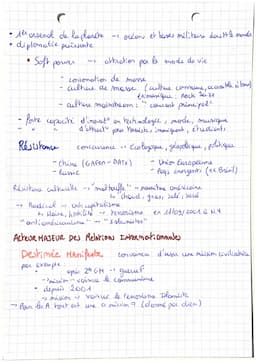 • 1er arsenal de la planète → océan et bases militaires dans tt le monde
• diplomatie puissante
• Soft power → attraction par le mode de vie
- consommation de masse
- culture de masse (culture commune, accessible à tous)
- culture mainstream : "courant principal"
- Forte capacité d'innov° en technologie, mode, musique
d'attract° pour touristes, immigrant, étudiants
Résistance concurrence → écologique, géopolitique, politique
- Chine (GAFAM - BATX) - Union Européenne
- Russie - Pays émergents (ex Brésil)
Résistance culturelle → "malbouffe" → nourriture américaine
↳ chaud, gras, salé, sucré
→ Radical → anticapitalisme
↳ Haine, hostilité → terrorisme ex 11/09/2001 à N.Y
"antiaméricanisme" → "Islamistes"
ACTEUR MAJEUR DES RELATIONS INTERNATIONALES
Destinée Manifeste convaincu d'avoir une mission civilisatrice
par exemple :
• après 2e GM → guerre f
"mission" vaincre le communisme
• depuis 2001
↳ mission → vaincre le terrorisme Islamiste
→ Pour les A tout est une "mission" (donnée par dieu)